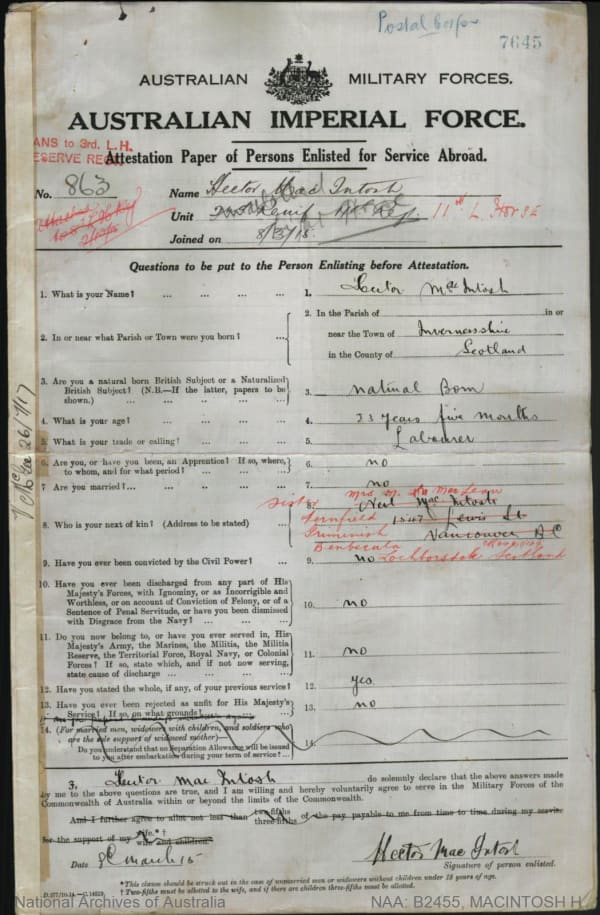 Postal Corps
7645
AUSTRALIAN MILITARY FORCES.
AUSTRALIAN IMPERIAL FORCE.
ANS to 3rd. L.H.
ESERVE REG
Attestation Paper of Persons Enlisted for Service Abroad.
No. 863 Name Hector Mac Intosh
Unit 11th L Horse
Joined on 8/3/15.
Questions to be put to the Person Enlisting before Attestation.
1. What is your Name? ... ... ... ... 1. Hector Mac Intosh
2. In or near what Parish or Town were you born? ... 2. In the Parish of in or
near the Town of Invernesshire
in the County of Scotland
3. Are you a natural born British Subject or a Naturalized British Subject? (N.B.—If the latter, papers to be shown.) ... ... ... ... ... 3. Natural Born
4. What is your age? ... ... ... ... 4. 33 years five months
5. What is your trade or calling? ... ... ... 5. Labourer
6. Are you, or have you been, an Apprentice? If so, where, to whom, and for what period? ... ... ... 6. no
7. Are you married? ... ... ... ... ... 7. no
8. Who is your next of kin? (Address to be stated) ... 8. Neil Mac Intosh
1547 Lewis St
Vancouver B C
sister Mrs. M. MacLean
Griminish
Benbecula
Lochboisdale Scotland
9. Have you ever been convicted by the Civil Power? ... 9. no
10. Have you ever been discharged from any part of His Majesty's Forces, with Ignominy, or as Incorrigible and Worthless, or on account of Conviction of Felony, or of a Sentence of Penal Servitude, or have you been dismissed with Disgrace from the Navy? ... ... ... 10. no
11. Do you now belong to, or have you ever served in, His Majesty's Army, the Marines, the Militia, the Militia Reserve, the Territorial Force, Royal Navy, or Colonial Forces? If so, state which, and if not now serving, state cause of discharge ... ... ... ... 11. no
12. Have you stated the whole, if any, of your previous service? 12. yes.
13. Have you ever been rejected as unfit for His Majesty's Service? If so, on what grounds? 13. no
14. (For married men, widowers with children, and soldiers who are the sole support of widowed mother)—
Do you understand that no Separation Allowance will be issued to you after embarkation during your term of service? ... 14.
I, Hector Mac Intosh do solemnly declare that the above answers made
by me to the above questions are true, and I am willing and hereby voluntarily agree to serve in the Military Forces of the
Commonwealth of Australia within or beyond the limits of the Commonwealth.
And I further agree to allot not less than two-fifths three-fifths of the pay payable to me from time to time during my service
for the support of my wife.*† wife and children.
Date 8th March 15 Hector Mac Intosh
Signature of person enlisted.
*This clause should be struck out in the case of unmarried men or widowers without children under 18 years of age.
†Two-fifths must be allotted to the wife, and if there are children three-fifths must be allotted.
National Archives of Australia
NAA: B2455, MACINTOSH H